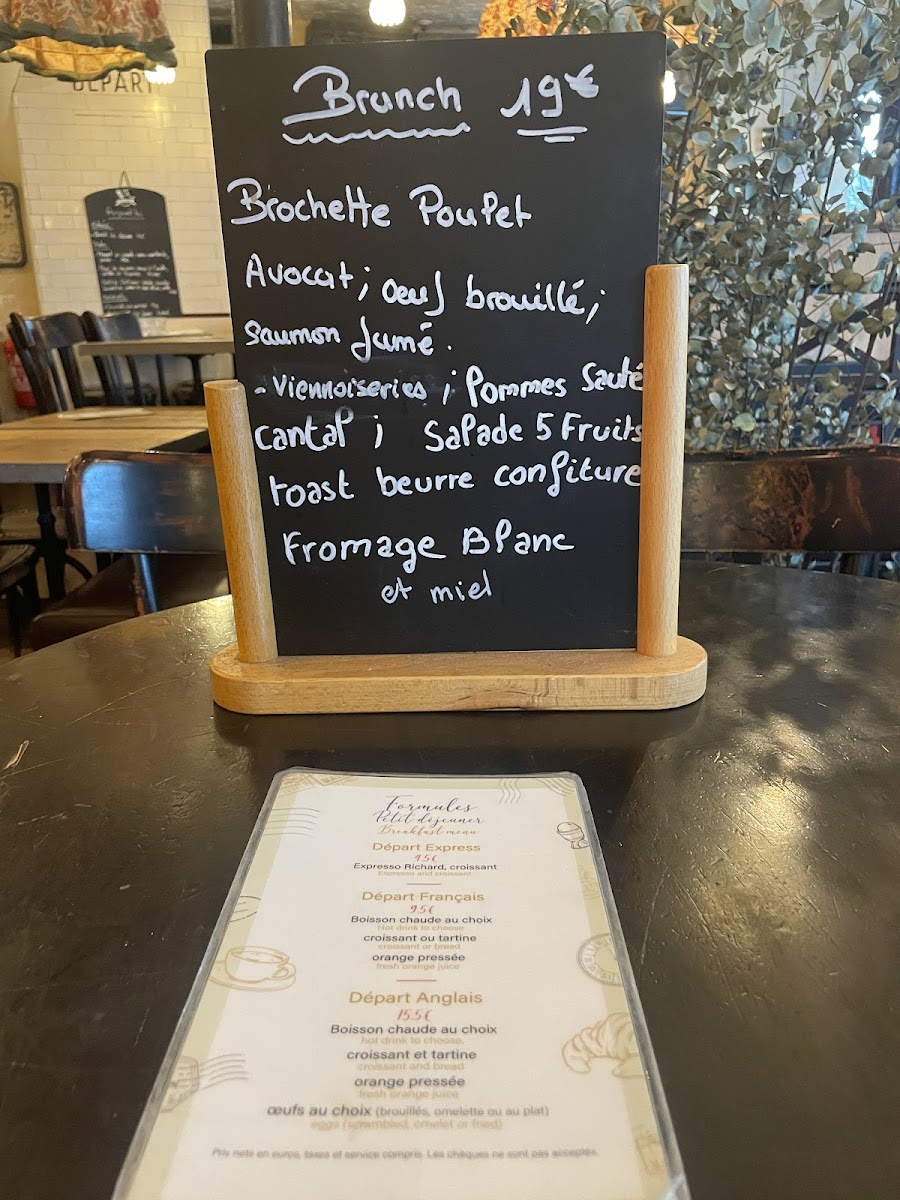 DÉPART
Brunch 19€
Brochette Poulet
Avocat; oeuf brouillé;
saumon fumé.
- Viennoiseries ; Pommes Sauté
cantal ; Salade 5 Fruits
toast beurre confiture
Fromage Blanc
et miel
Formules
Petit déjeuner
Breakfast menu
Départ Express
4.5€
Expresso Richard, croissant
Espresso and croissant
Départ Français
9.5€
Boisson chaude au choix
Hot drink to choose
croissant ou tartine
croissant or bread
orange pressée
fresh orange juice
Départ Anglais
15.5€
Boisson chaude au choix
hot drink to choose.
croissant et tartine
croissant and bread
orange pressée
fresh orange juice
œufs au choix (brouillés, omelette ou au plat)
eggs (scrambled, omelet or fried)
Prix nets en euros, taxes et service compris. Les chèques ne sont pas acceptés.